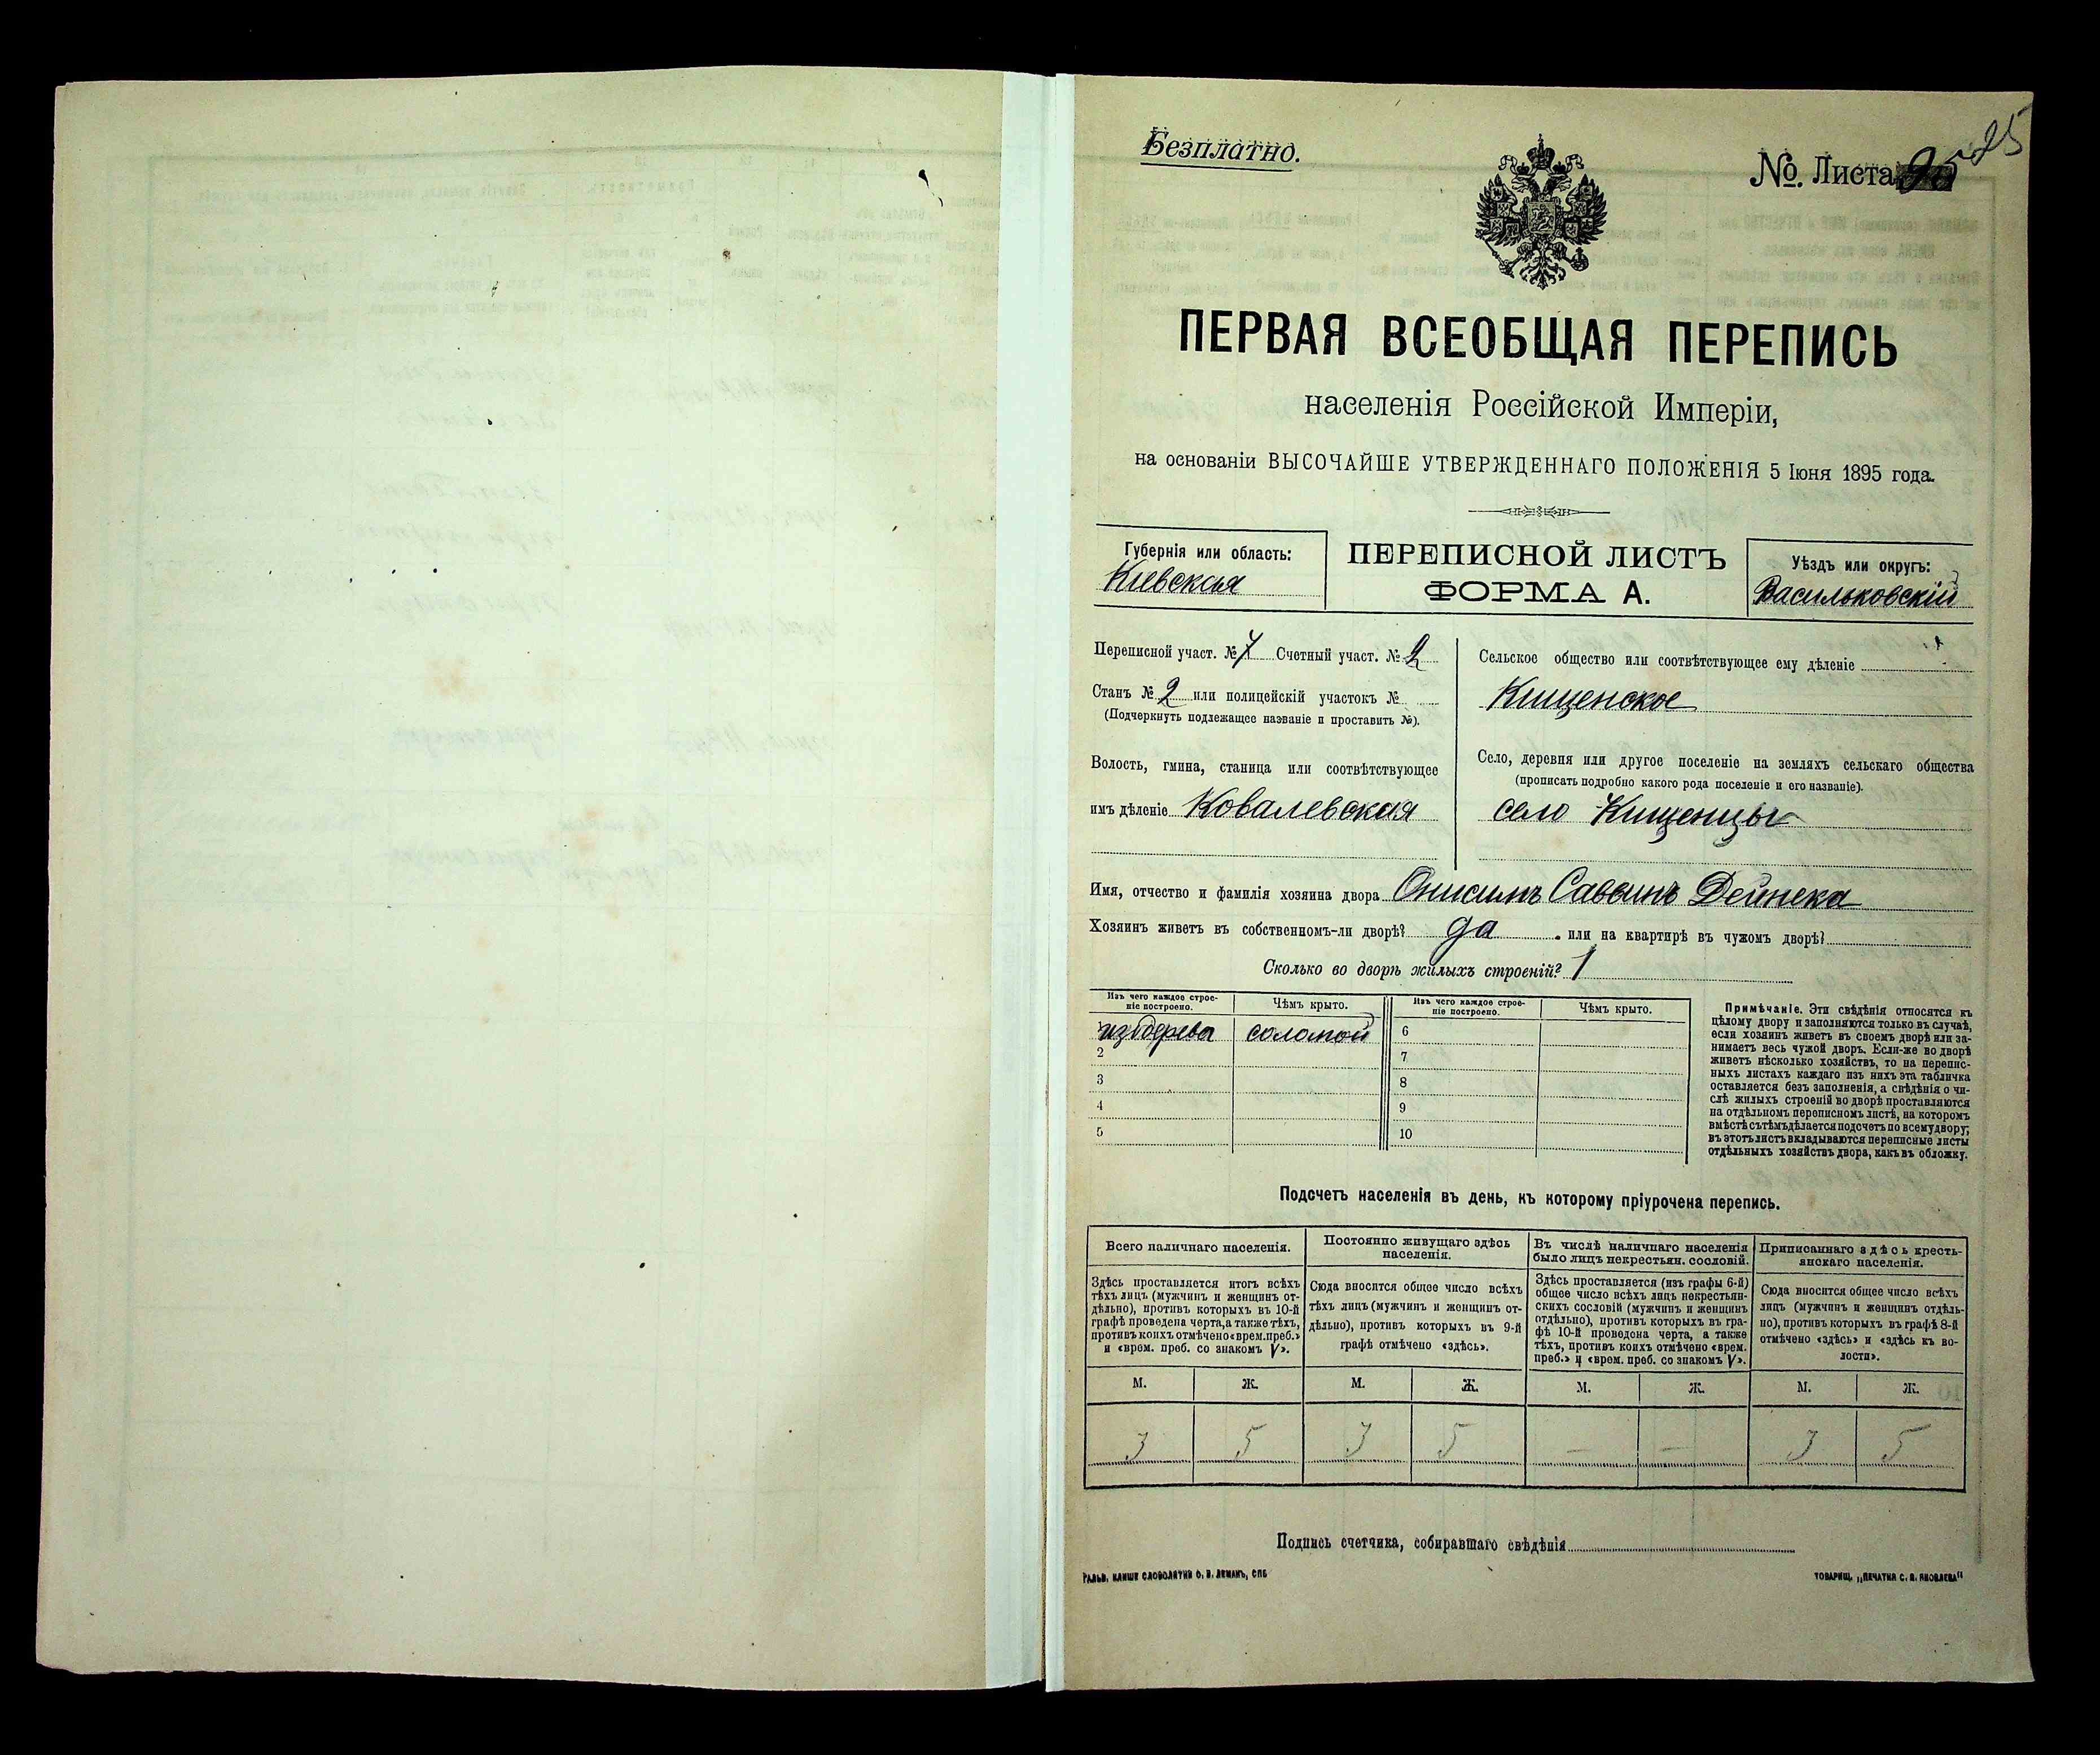 Безплатно.
№. Листа 95
ПЕРВАЯ ВСЕОБЩАЯ ПЕРЕПИСЬ
населенія Россійской Имперіи,
на основаніи ВЫСОЧАЙШЕ УТВЕРЖДЕННАГО ПОЛОЖЕНІЯ 5 Іюня 1895 года.
Губернія или область:
Кіевская
ПЕРЕПИСНОЙ ЛИСТЪ
ФОРМА А.
Уѣздъ или округъ:
Васильковскій
Переписной участ. № Счетный участ. № 2
Станъ № 2 или полицейскій участокъ №
(Подчеркнуть подлежащее названіе и проставить №).
Волость, гмина, станица или соотвѣтствующее
имъ дѣленіе Ковалевская
Сельское общество или соотвѣтствующее ему дѣленіе
Кищенское
Село, деревня или другое поселеніе на земляхъ сельскаго общества
(прописать подробно какого рода поселеніе и его названіе).
село Кищенцы
Имя, отчество и фамилія хозяина двора Онисимъ Саввинъ Дейнека
Хозяинъ живетъ въ собственномъ-ли дворѣ? да . или на квартирѣ въ чужомъ дворѣ?
Сколько во дворѣ жилыхъ строеній? 1
Изъ чего каждое строе-
ніе построено.
Чѣмъ крыто.
Изъ чего каждое строе-
ніе построено.
Чѣмъ крыто.
изъ дерева соломой 6
2 7
3 8
4 9
5 10
Примѣчаніе. Эти свѣдѣнія относятся къ
цѣлому двору и заполняются только въ случаѣ,
если хозяинъ живетъ въ своемъ дворѣ или за-
нимаетъ весь чужой дворъ. Если-же во дворѣ
живетъ нѣсколько хозяйствъ, то на перепис-
ныхъ листахъ каждаго изъ нихъ эта табличка
оставляется безъ заполненія, а свѣдѣнія о чи-
слѣ жилыхъ строеній во дворѣ проставляются
на отдѣльномъ переписномъ листѣ, на которомъ
вмѣстѣ съ тѣмъ дѣлается подсчетъ по всему двору;
въ этотъ листъ вкладываются переписные листы
отдѣльныхъ хозяйствъ двора, какъ въ обложку.
Подсчетъ населенія въ день, къ которому пріурочена перепись.
Всего наличнаго населенія.
Здѣсь проставляется итогъ всѣхъ
тѣхъ лицъ (мужчинъ и женщинъ от-
дѣльно), противъ которыхъ въ 10-й
графѣ проведена черта, а также тѣхъ,
противъ коихъ отмѣчено «врем. преб.»
и «врем. преб. со знакомъ V».
Постоянно живущаго здѣсь
населенія.
Сюда вносится общее число всѣхъ
тѣхъ лицъ (мужчинъ и женщинъ от-
дѣльно), противъ которыхъ въ 9-й
графѣ отмѣчено «здѣсь».
Въ числѣ наличнаго населенія
было лицъ некрестьян. сословій.
Здѣсь проставляется (изъ графы 6-й)
общее число всѣхъ лицъ некрестьян-
скихъ сословій (мужчинъ и женщинъ
отдѣльно), противъ которыхъ въ гра-
фѣ 10-й проведена черта, а также
тѣхъ, противъ коихъ отмѣчено «врем.
преб.» и «врем. преб. со знакомъ V».
Приписаннаго здѣсь кресть-
янскаго населенія.
Сюда вносится общее число всѣхъ
лицъ (мужчинъ и женщинъ отдѣль-
но), противъ которыхъ въ графѣ 8-й
отмѣчено «здѣсь» и «здѣсь къ во-
лости».
М. Ж. М. Ж. М. Ж. М. Ж.
3 5 3 5 — — 3 5
Подпись счетчика, собиравшаго свѣдѣнія
ГАЛЬВ. КЛИШЕ СЛОВОЛИТНИ О. И. ЛЕМАНЪ, СПБ
ТОВАРИЩ. „ПЕЧАТНЯ С. П. ЯКОВЛЕВА“